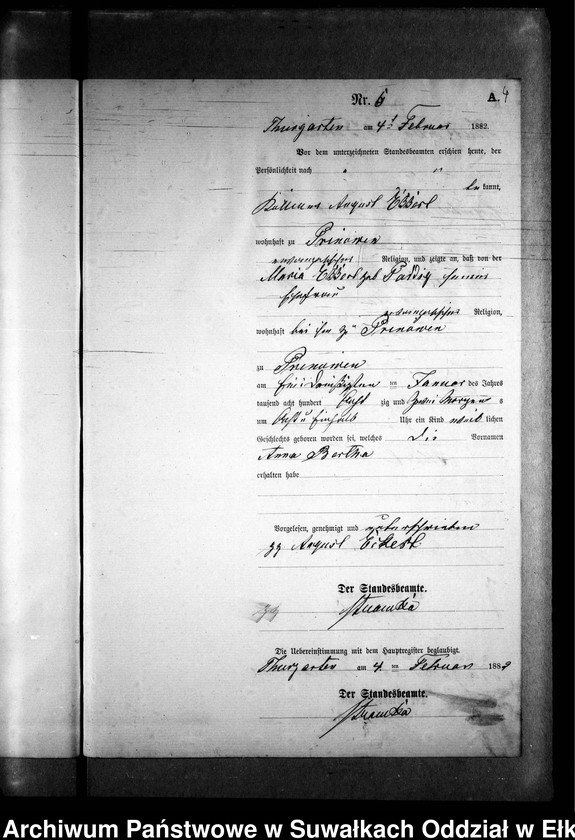 Nr. 6
A. 4
Thurgarten am 4t Februar 1882.
Vor dem unterzeichneten Standesbeamten erschien heute, der
Persönlichkeit nach
bekannt,
August Eckert
wohnhaft zu Prinowen
evangelischer Religion, und zeigte an, daß von der
Maria Eckert geb seiner
Ehefrau
evangelischer Religion,
wohnhaft bei ihm zu Prinowen
zu Prinowen
am ein Dreißigsten ten Januar des Jahres
tausend acht hundert Acht zig und zwei Morgens
um Acht u Einhalb Uhr ein Kind weib lichen
Geschlechts geboren worden sei, welches die Vornamen
Anna Bertha
erhalten habe
Vorgelesen, genehmigt und unterschrieben
gz August Eckert
Der Standesbeamte.
Die Uebereinstimmung mit dem Hauptregister beglaubigt.
Thurgarten am 4. ten Februar 1882
Der Standesbeamte.
Archiwum Państwowe w Suwałkach Oddział w Ełk